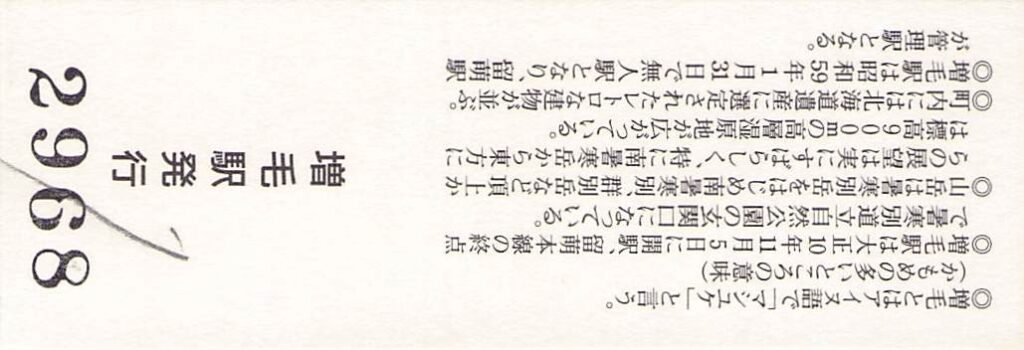 ◎増毛とはアイヌ語で「マシュケ」と言う。
(かもめの多いところの意味)
◎増毛駅は大正10年11月5日に開駅、留萌本線の終点
で暑寒別道立自然公園の玄関口になっている。
◎山岳は暑寒別岳をはじめ南暑寒別、群別岳など頂上か
らの展望は実にすばらしく、特に南暑寒岳から東方に
は標高900mの高層湿原地が広がっている。
◎町内には北海道遺産に選定されたレトロな建物が並ぶ。
◎増毛駅は昭和59年1月31日で無人駅となり、留萌駅
が管理駅となる。
増毛駅発行
2968